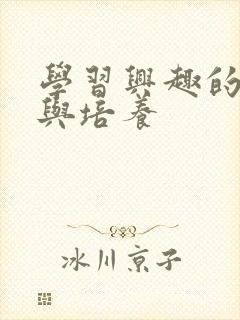 學習興趣的
與培養
冰川京子